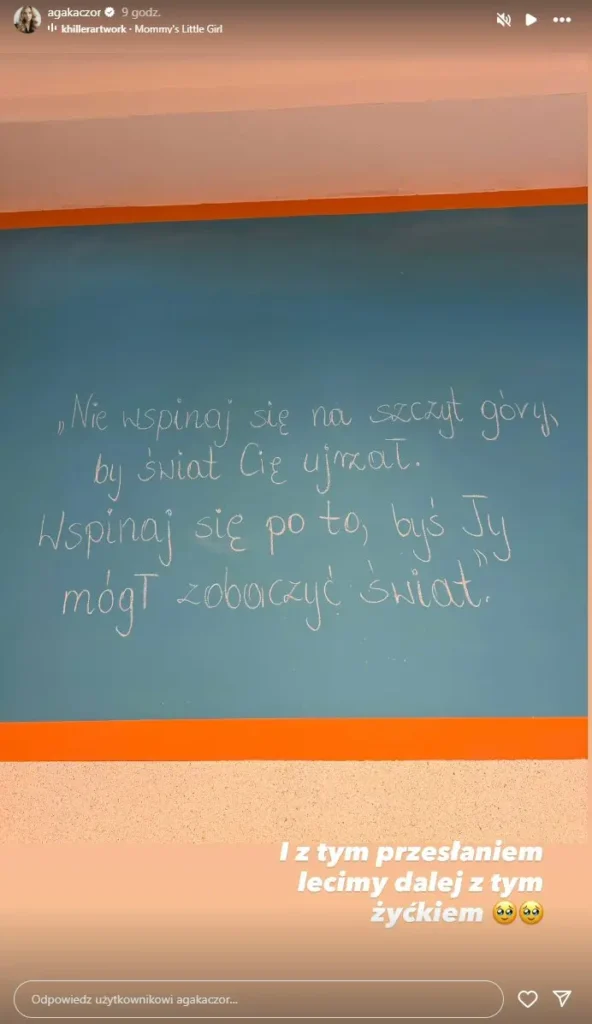 agakaczor 9 godz.
khillerartwork · Mommy's Little Girl
„Nie wspinaj się na szczyt góry,
by świat Cię ujrzał.
Wspinaj się po to, byś Ty
mógł zobaczyć świat".
I z tym przesłaniem
lecimy dalej z tym
żyćkiem 🥹🥹
Odpowiedz użytkownikowi agakaczor...